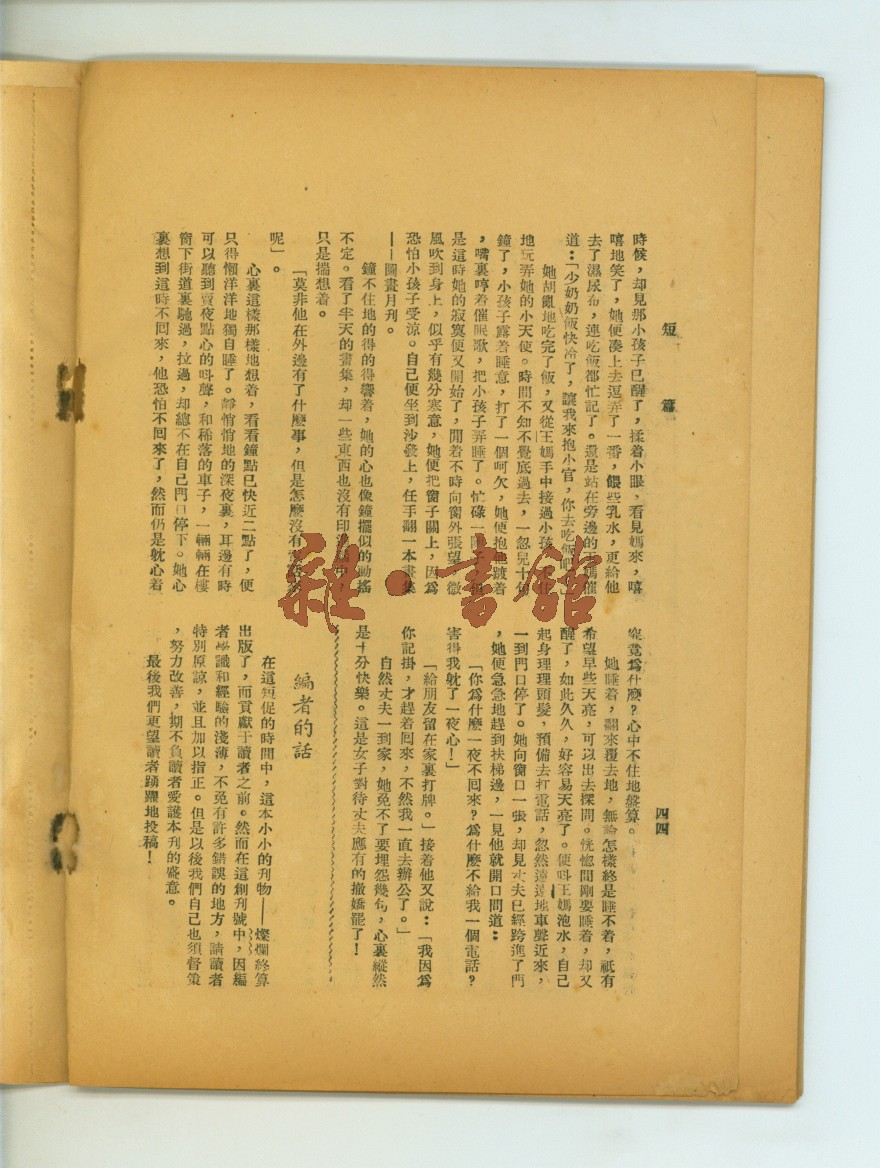 短篇
四四
時候，却見那小孩子已醒了，揉着小眼，看見媽來，嘻
嘻地笑了，她便湊上去逗弄了一番，餵些乳水，更給他
去了濕尿布，連吃飯都忙記了。還是站在旁邊的王媽催
道：「少奶奶飯快冷了，讓我來抱小官，你去吃飯吧」
她胡亂地吃完了飯，又從王媽手中接過小孩
地玩弄她的小天使。時間不知不覺底過去，一忽兒十句
鐘了，小孩子露着睡意，打了一個呵欠，她便抱他踱着
，嘴裏哼着催眠歌，把小孩子弄睡了。忙碌一
是這時她的寂寞便又開始了，閒着不時向窗外張望，微
風吹到身上，似乎有幾分寒意，她便把窗子關上，因爲
恐怕小孩子受涼。自己便坐到沙發上，任手翻一本畫集
——圖畫月刊。
鐘不住地的得的得響着，她的心也像鐘擺似的動搖
不定。看了半天的畫集，却一些東西也沒有印
只是揣想着。
「莫非他在外邊有了什麽事，但是怎麽沒有
呢」。
心裏這樣那樣地想着，看看鐘點已快近二點了，便
只得懶洋洋地獨自睡了。靜悄悄地的深夜裏，耳邊有時
可以聽到賣夜點心的呌聲，和稀落的車子，一輛輛在樓
窗下街道裏馳過，拉過，却總不在自己門口停下。她心
裏想到這時不回來，他恐怕不回來了，然而仍是躭心着
究竟爲什麽？心中不住地盤算。
她睡着，翻來覆去地，無論怎樣終是睡不着，祇有
希望早些天亮，可以出去探問。恍惚間剛要睡着，却又
醒了，如此久久，好容易天亮了。便呌王媽泡水，自己
起身理理頭髮，預備去打電話，忽然遠遠地車聲近來，
一到門口停了。她向窗口一張，却見丈夫已經跨進了門
，她便急急地趕到扶梯邊，一見他就開口問道：
「你爲什麽一夜不回來？爲什麽不給我一個電話？
害得我躭了一夜心！」
「給朋友留在家裏打牌。」接着他又說：「我因爲
你記掛，才趕着回來，不然我一直去辦公了。」
自然丈夫一到家，她免不了要埋怨幾句，心裏縱然
是十分快樂。這是女子對待丈夫應有的撒嬌罷了！
編者的話
在這短促的時間中，這本小小的刊物——燦爛終算
出版了，而貢獻于讀者之前。然而在這創刊號中，因編
者學識和經驗的淺薄，不免有許多錯誤的地方，請讀者
特別原諒，並且加以指正。但是以後我們自己也須督策
，努力改善，期不負讀者愛護本刊的盛意。
最後我們更望讀者踴躍地投稿！
雜·書館